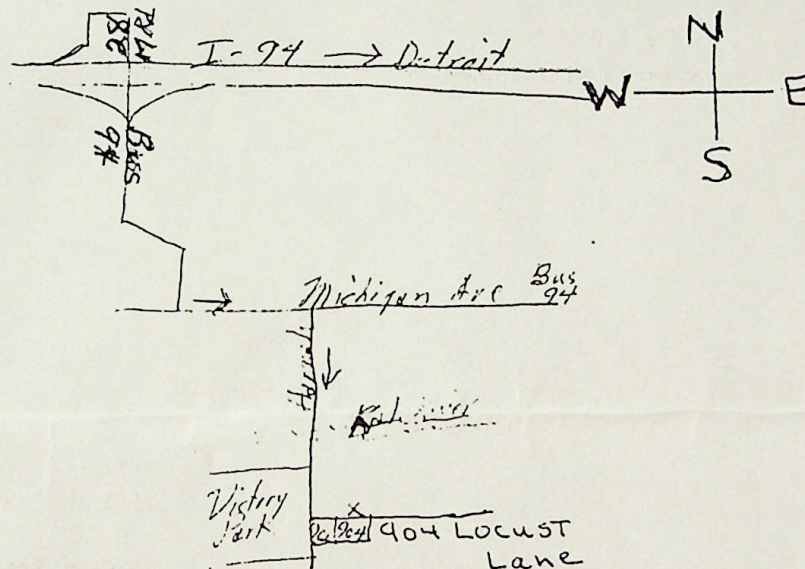 28
M Rd
I-94 → Detroit
N
W E
S
Buss
94
Michigan Ave Bus
94
Victory
Park
904
904 Locust
Lane